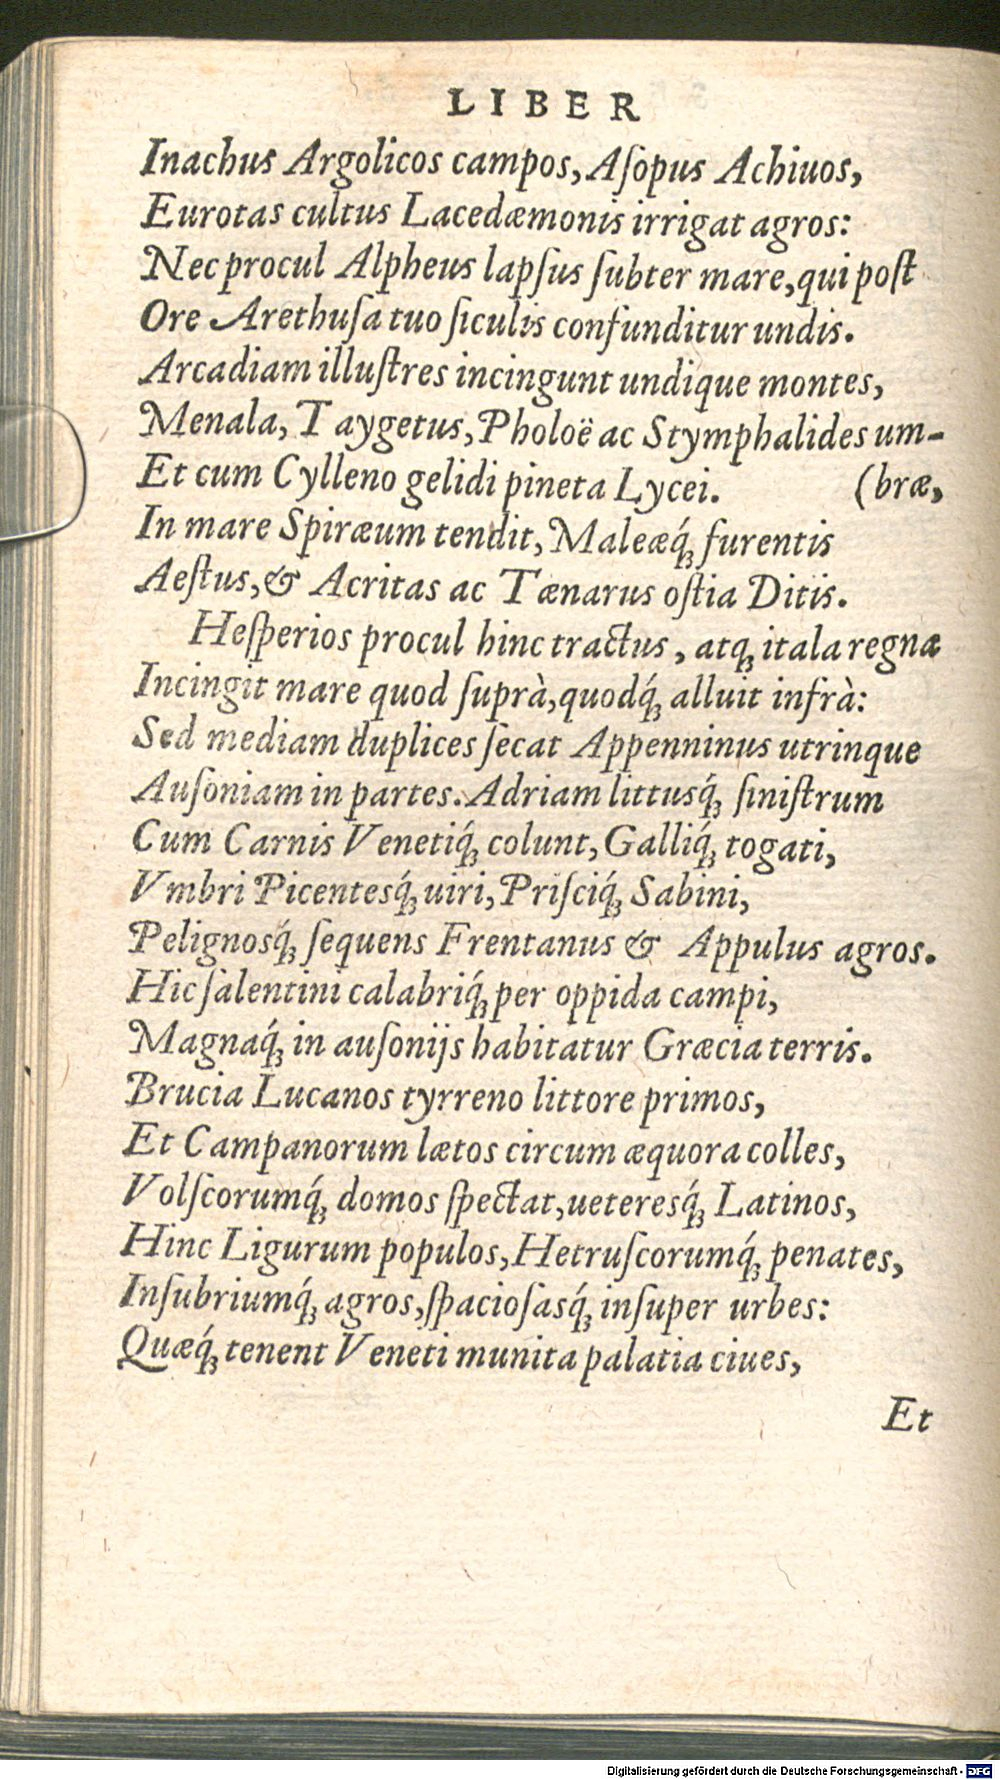 LIBER
Inachus Argolicos campos, Aſopus Achiuos,
Eurotas cultus Lacedæmonis irrigat agros:
Nec procul Alpheus lapſus ſubter mare, qui poſt
Ore Arethuſa tuo ſiculis confunditur undis.
Arcadiam illuſtres incingunt undique montes,
Menala, Taygetus, Pholoë ac Stymphalides um-
Et cum Cylleno gelidi pineta Lycei. (bræ,
In mare Spiræum tendit, Maleæq́ꝫ furentis
Aeſtus, & Acritas ac Tænarus oſtia Ditis.
Heſperios procul hinc tractus, atqꝫ itala regna
Incingit mare quod ſuprà, quodq́ꝫ alluit infrà:
Sed mediam duplices ſecat Appenninus utrinque
Auſoniam in partes. Adriam littusq́ꝫ ſiniſtrum
Cum Carnis Venetiq́ꝫ colunt, Galliq́ꝫ togati,
Vmbri Picentesq́ꝫ uiri, Priſciq́ꝫ Sabini,
Pelignosq́ꝫ ſequens Frentanus & Appulus agros.
Hic ſalentini calabriq́ꝫ per oppida campi,
Magnaq́ꝫ in auſonijs habitatur Græcia terris.
Brucia Lucanos tyrreno littore primos,
Et Campanorum lætos circum æquora colles,
Volſcorumq́ꝫ domos ſpectat, ueteresq́ꝫ Latinos,
Hinc Ligurum populos, Hetruſcorumq́ꝫ penates,
Inſubriumq́ꝫ agros, ſpacioſasq́ꝫ inſuper urbes:
Quæq́ꝫ tenent Veneti munita palatia ciues,
Et
Digitalisierung gefördert durch die Deutsche Forschungsgemeinschaft - DFG